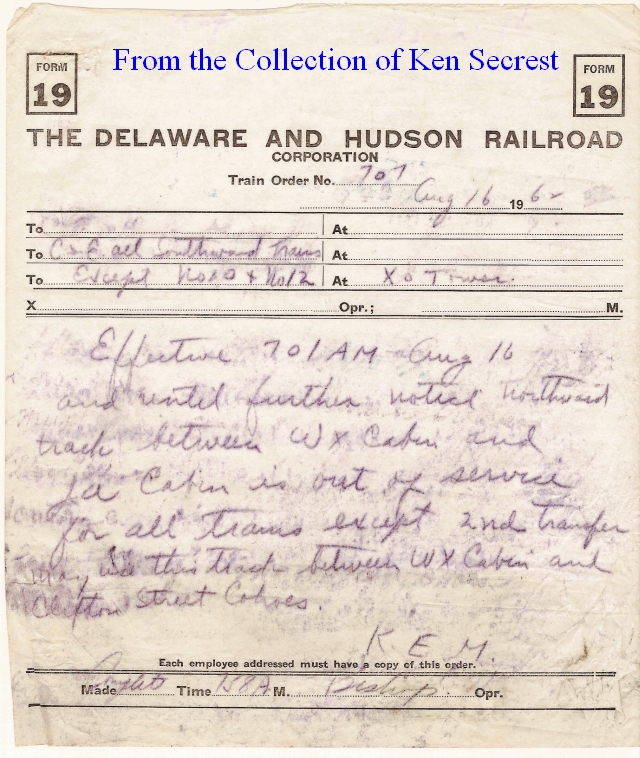 From the Collection of Ken Secrest
FORM 19
FORM 19
THE DELAWARE AND HUDSON RAILROAD
CORPORATION
Train Order No. 707
Aug 16 1962
To At
To C&E all Southward trains At
To Except No 10 & No 12 At XO Tower.
X Opr.; M.
Effective 701 AM Aug 16
and until further notice northward
track between WX Cabin and
JA Cabin is out of service
for all trains except 2nd transfer
may use this track between WX Cabin and
Clifton Street Cohoes.
K.E.M.
Each employee addressed must have a copy of this order.
Made Time M. Bishop. Opr.